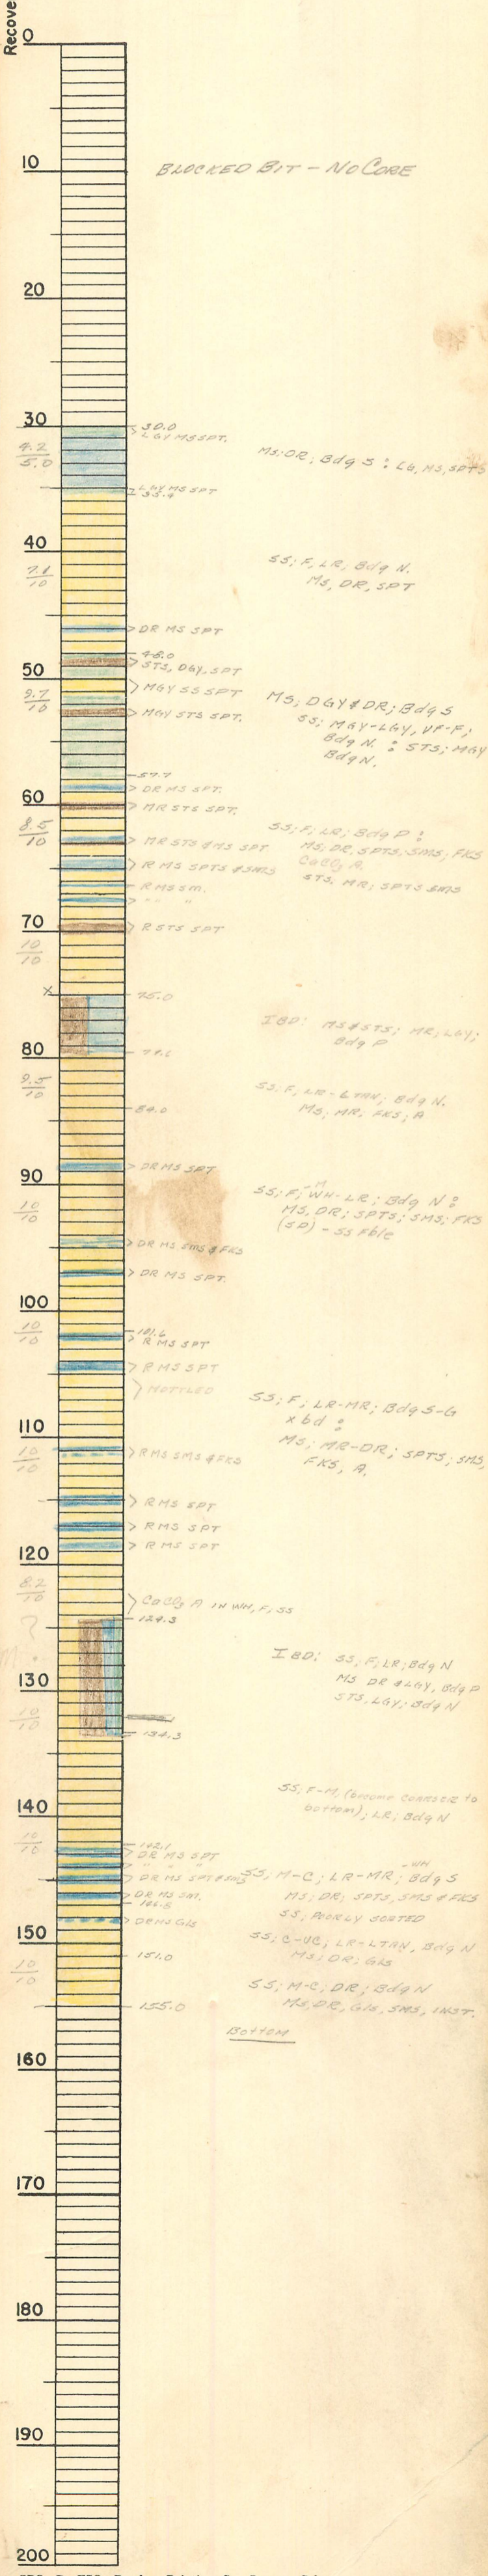 Recove
0
10
BLOCKED BIT - NO CORE
20
30
30.0
LGY MS SPT.
4.2
5.0
MS; DR; Bdg S : LG, MS, SPTS
LGY MS SPT
35.4
40
7.1
10
SS; F, LR; Bdg N.
MS, DR, SPT
DR MS SPT
48.0
STS, DGY, SPT
50
MGY SS SPT
9.7
10
MS; DGY & DR; Bdg S
SS; MGY-LGY, VF-F;
Bdg N. : STS; MGY
Bdg N.
MGY STS SPT.
57.7
DR MS SPT.
60
MR STS SPT.
8.5
10
SS; F; LR; Bdg P :
MS; DR, SPTS, SMS; FKS
CaCO3 A.
STS, MR; SPTS SMS
MR STS & MS SPT
R MS SPTS & SMS
R MS SM.
" " "
70
R STS SPT
10
10
X
75.0
IBD: MS & STS; MR; LGY;
Bdg P
80
79.6
9.5
10
SS; F, LR-LTAN; Bdg N.
MS; MR; FKS; A
84.0
DR MS SPT
90
10
10
SS; F;-M WH-LR; Bdg N :
MS, DR; SPTS; SMS; FKS
(SD) - SS Fble
DR MS SMS & FKS
DR MS SPT.
100
10
10
101.6
R MS SPT
R MS SPT
MOTTLED
SS; F; LR-MR; Bdg S-G
x bd :
MS; MR-DR; SPTS; SMS,
FKS, A.
110
10
10
R MS SMS & FKS
R MS SPT
R MS SPT
R MS SPT
120
8.2
10
CaCO3 A IN WH, F, SS
124.3
?
M.
IBD: SS, F; LR; Bdg N
MS DR & LGY, Bdg P
STS, LGY; Bdg N
130
10
10
134.3
SS; F-M, (become coarser to
bottom); LR; Bdg N
140
10
10
142.1
DR MS SPT
" " "
DR MS SPT & SMS
SS; M-C; LR-MR;-WH Bdg S
MS; DR; SPTS, SMS & FKS
SS, POORLY SORTED
DR MS SM.
146.8
DR MS GLS
150
SS; C-VC; LR-LTAN, Bdg N
MS; DR; GLS
151.0
10
10
SS; M-C; DR; Bdg N
MS, DR, GLS, SMS, INST.
155.0
Bottom
160
170
180
190
200